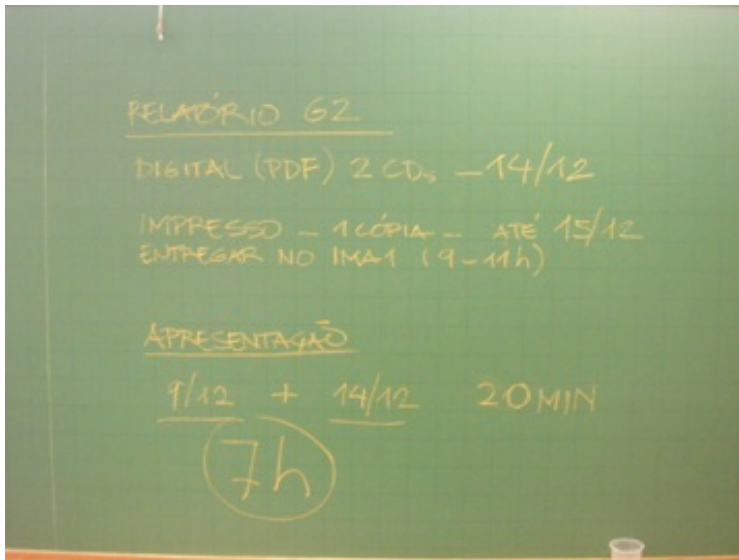 RELATÓRIO G2
DIGITAL (PDF) 2 CDs - 14/12
IMPRESSO - 1 CÓPIA - ATÉ 15/12
ENTREGAR NO IMA1 (9-11h)
APRESENTAÇÃO
9/12 + 14/12 20 MIN
7h